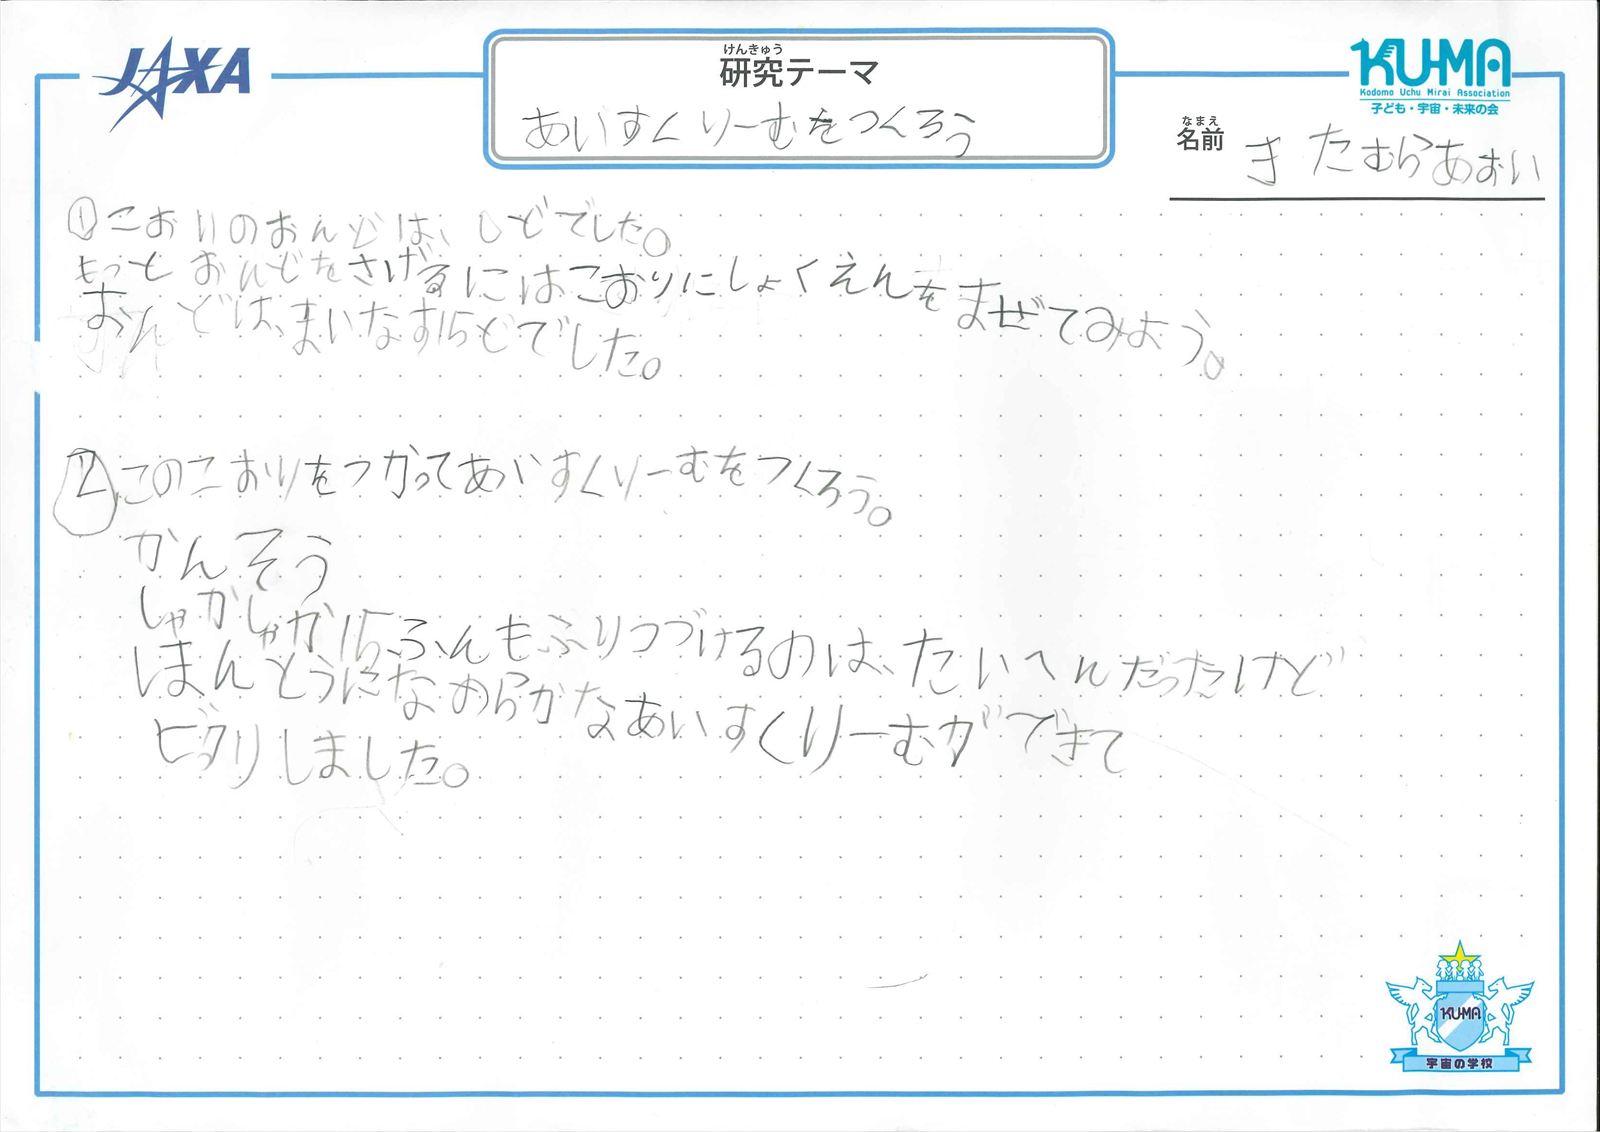 JAXA
けんきゅう
研究テーマ
あいすくりーむをつくろう
KU-MA
Kodomo Uchu Mirai Association
子ども・宇宙・未来の会
なまえ
名前
きたむらあおい
①こおりのおんどは、しどでした。
もっとおんどをさげるにはこおりにしょくえんをまぜてみよう。
おんどは、まいなす15どでした。
②このこおりをつかってあいすくりーむをつくろう。
かんそう
しゃかしゃか15ふんもふりつづけるのは、たいへんだったけど
ほんとうになめらかなあいすくりーむができて
ビックリしました。
KU-MA
宇宙の学校